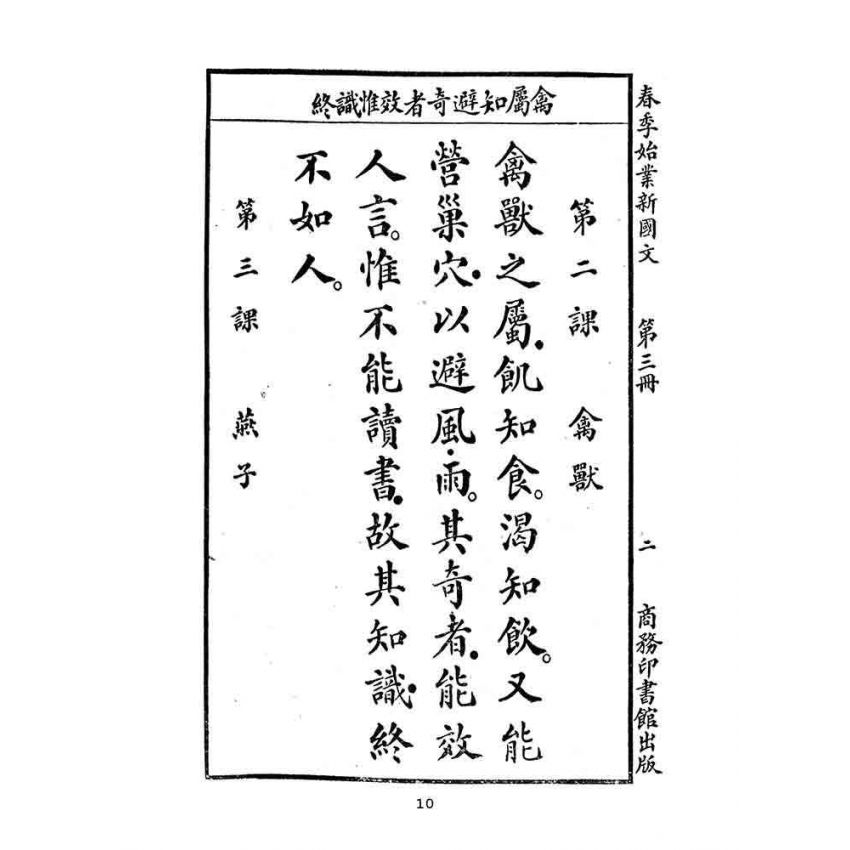 春季始業新國文 第三冊 二 商務印書館出版
禽屬知避奇者效惟識終
第二課 禽獸
禽獸之屬.飢知食。渴知飲。又能
營巢穴.以避風.雨。其奇者.能效
人言。惟不能讀書.故其知識.終
不如人。
第三課 燕子
10